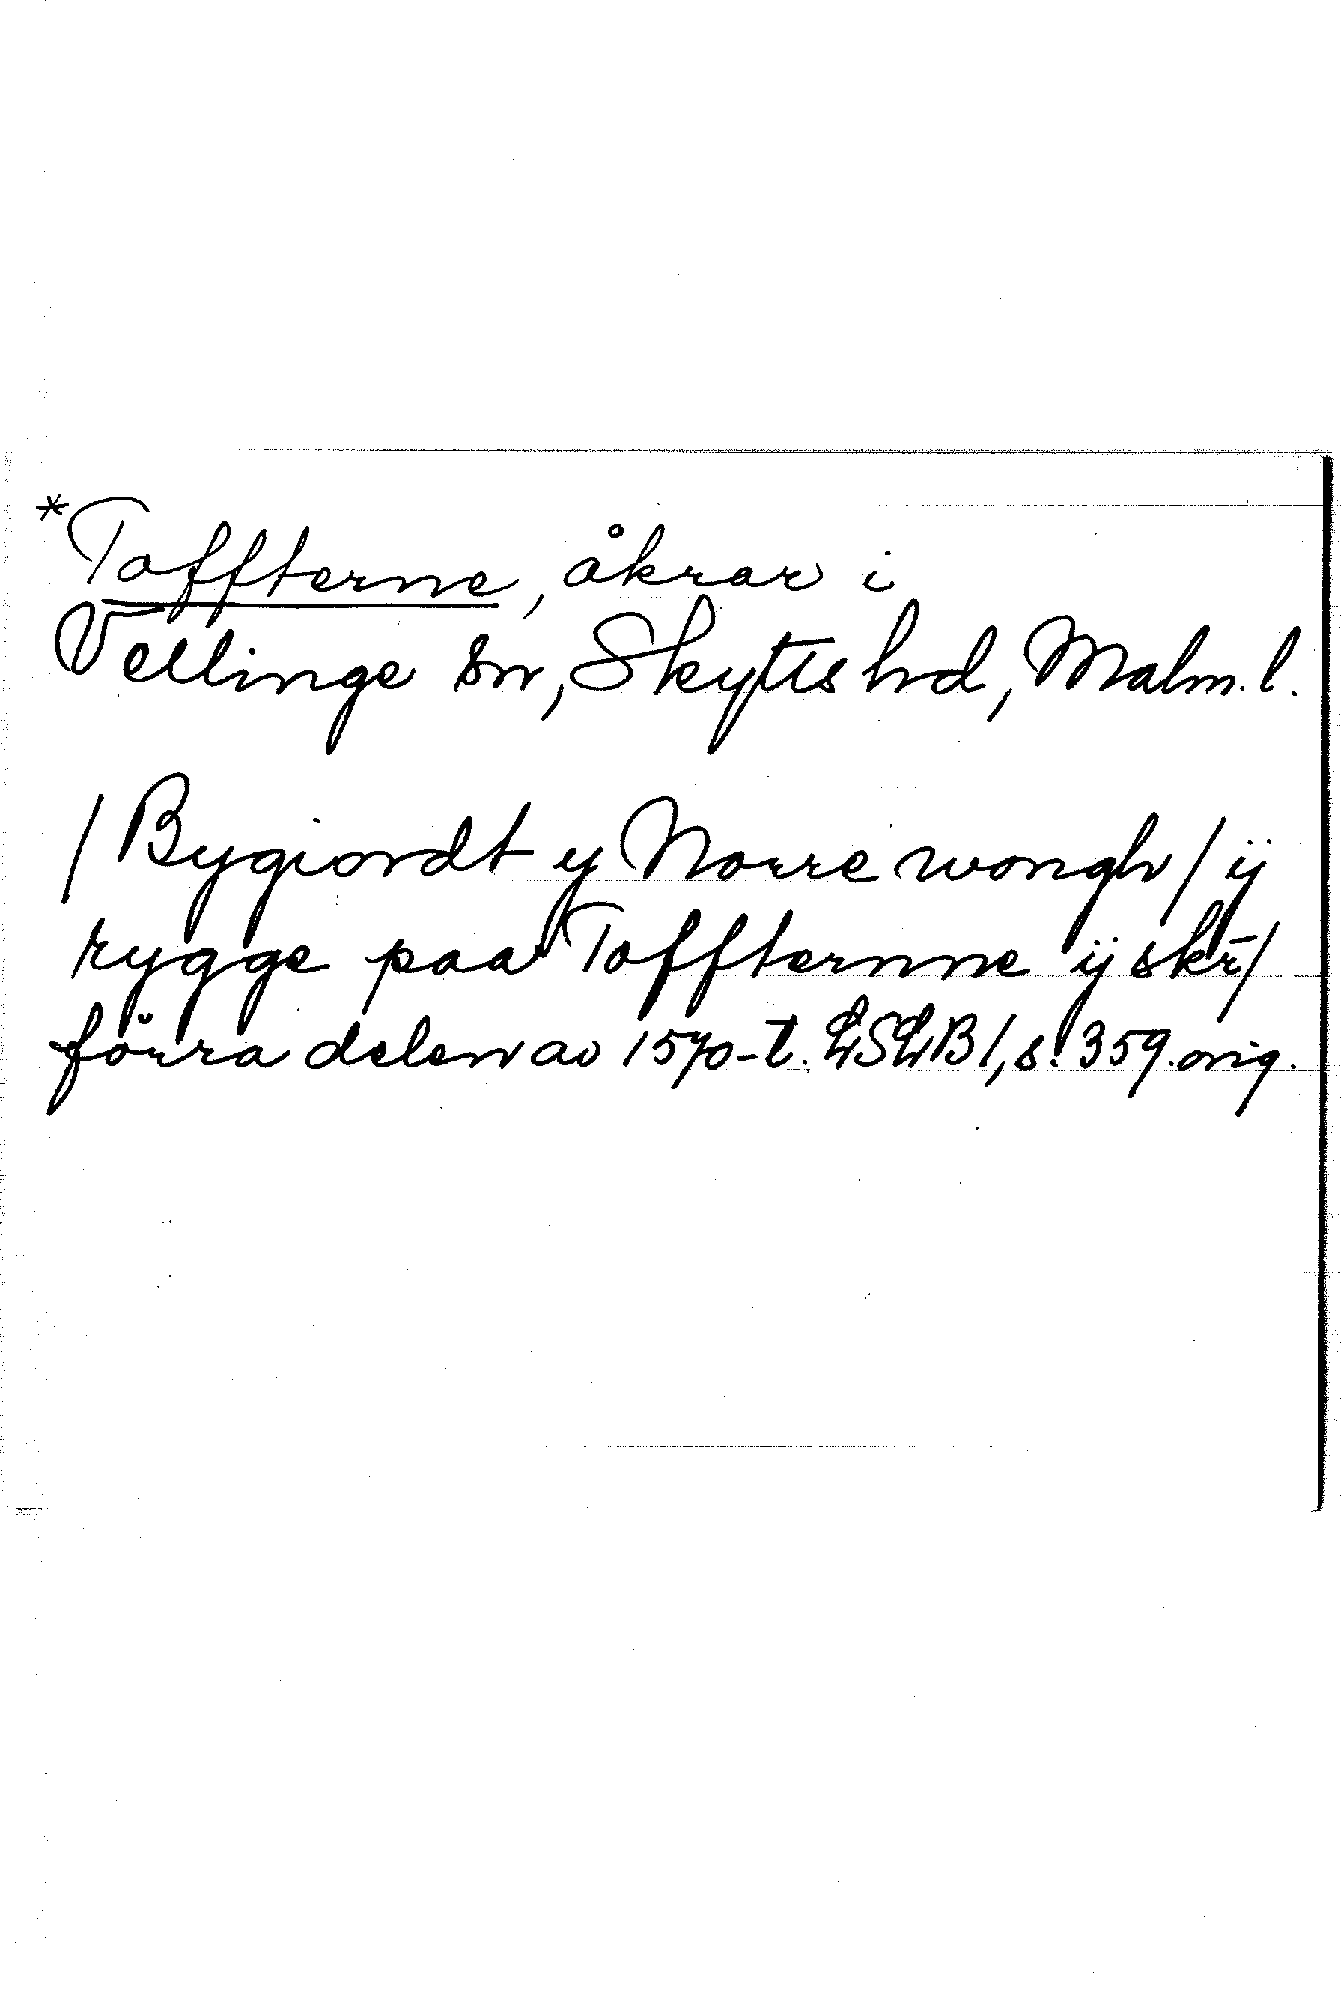 *Toffterne, åkrar i
Vellinge sn, Skytts hd, Malm. l.
/ Bygiordt y Norre wongh / ij
rygge paa Toffternne ij skr̄/
förra delen av 1570-t. LSLB 1, s. 359. orig.